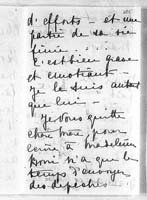 d'efforts — et une
partie de sa vie
finie...
C'est bien grave
et émotionnant —
je le suis autant
que lui —
Je vous quitte
chère Mme pour
écrire à Madeleine
n'a que le
temps d'envoyer
des dépêches —